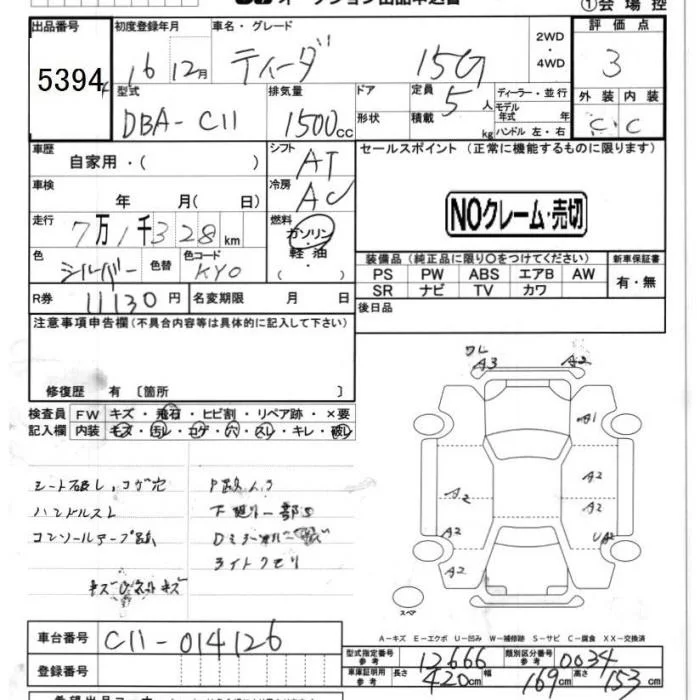 ①会場控
出品番号 初度登録年月 車名・グレード 2WD・4WD 評価点
5394 16 12月 ティーダ 15G 3
型式 排気量 ドア 定員 5人 ディーラー・並行 外装 内装
DBA-C11 1500cc 形状 積載 kg モデル年式 年 ハンドル 左・右 C C
車歴 自家用・( ) シフト AT セールスポイント (正常に機能するものに限ります)
車検 年 月( 日) 冷房 AC
NOクレーム・売切
走行 7万1千328km 燃料 ガソリン・軽油・( )
色 シルバー 色替 色コード KY0
装備品(純正品に限り〇をつけてください) 新車保証書
PS PW ABS エアB AW 有・無
SR ナビ TV カワ
R券 11130円 名変期限 月 日 後日品
注意事項申告欄(不具合内容等は具体的に記入して下さい)
修復歴 有 〔箇所 〕
検査員記入欄 FW キズ・飛石・ヒビ割・リペア跡・×要
内装 キズ・汚レ・コゲ・穴・スレ・キレ・破レ
ワレ
A3 A2
A1
A2 A2
A2
A2 UA2
A2
シート破レ,コゲ穴
ハンドルスレ
下廻り一部S
ライトクモリ
スペア
A-キズ E-エクボ U-凹み W-補修跡 S-サビ C-腐食 XX-交換済
車台番号 C11-014126
型式指定番号 参考 12666 類別区分番号 参考 0034
登録番号
車庫証明用 参考 長さ 420cm 幅 169cm 高さ 153cm